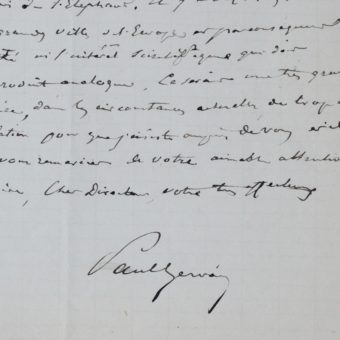 de l'Elephant. Il y
grandes villes d'Europe et par conséquent
ni l'intérêt scientifique que doi
produit analogue. Ce serait une très gra
dans les circonstances actuelles de trop
pour que j'insiste auprès de vous et
vous remercier de votre aimable attention
Cher Directeur, votre très affectionné
Paul Gervais